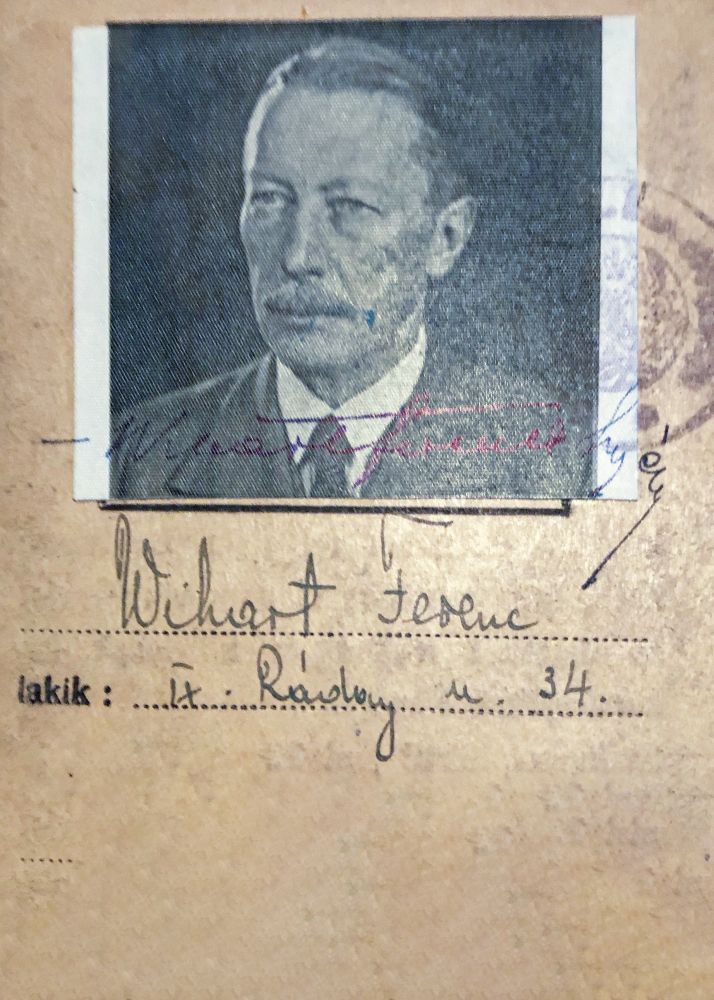 Wihart Ferenc
lakik: IX. Ráday u. 34.